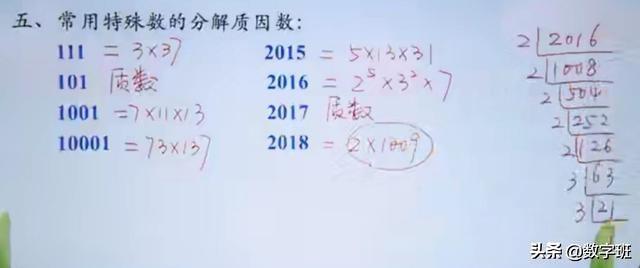 五、常用特殊数的分解质因数:
111 = 3×37 2015 = 5×13×31
101 质数 2016 = 2⁵×3²×7
1001 =7×11×13 2017 质数
10001 = 73×137 2018 = 2×1009
2 2016
2 1008
2 504
2 252
2 126
3 63
3 21
头条 @数字班